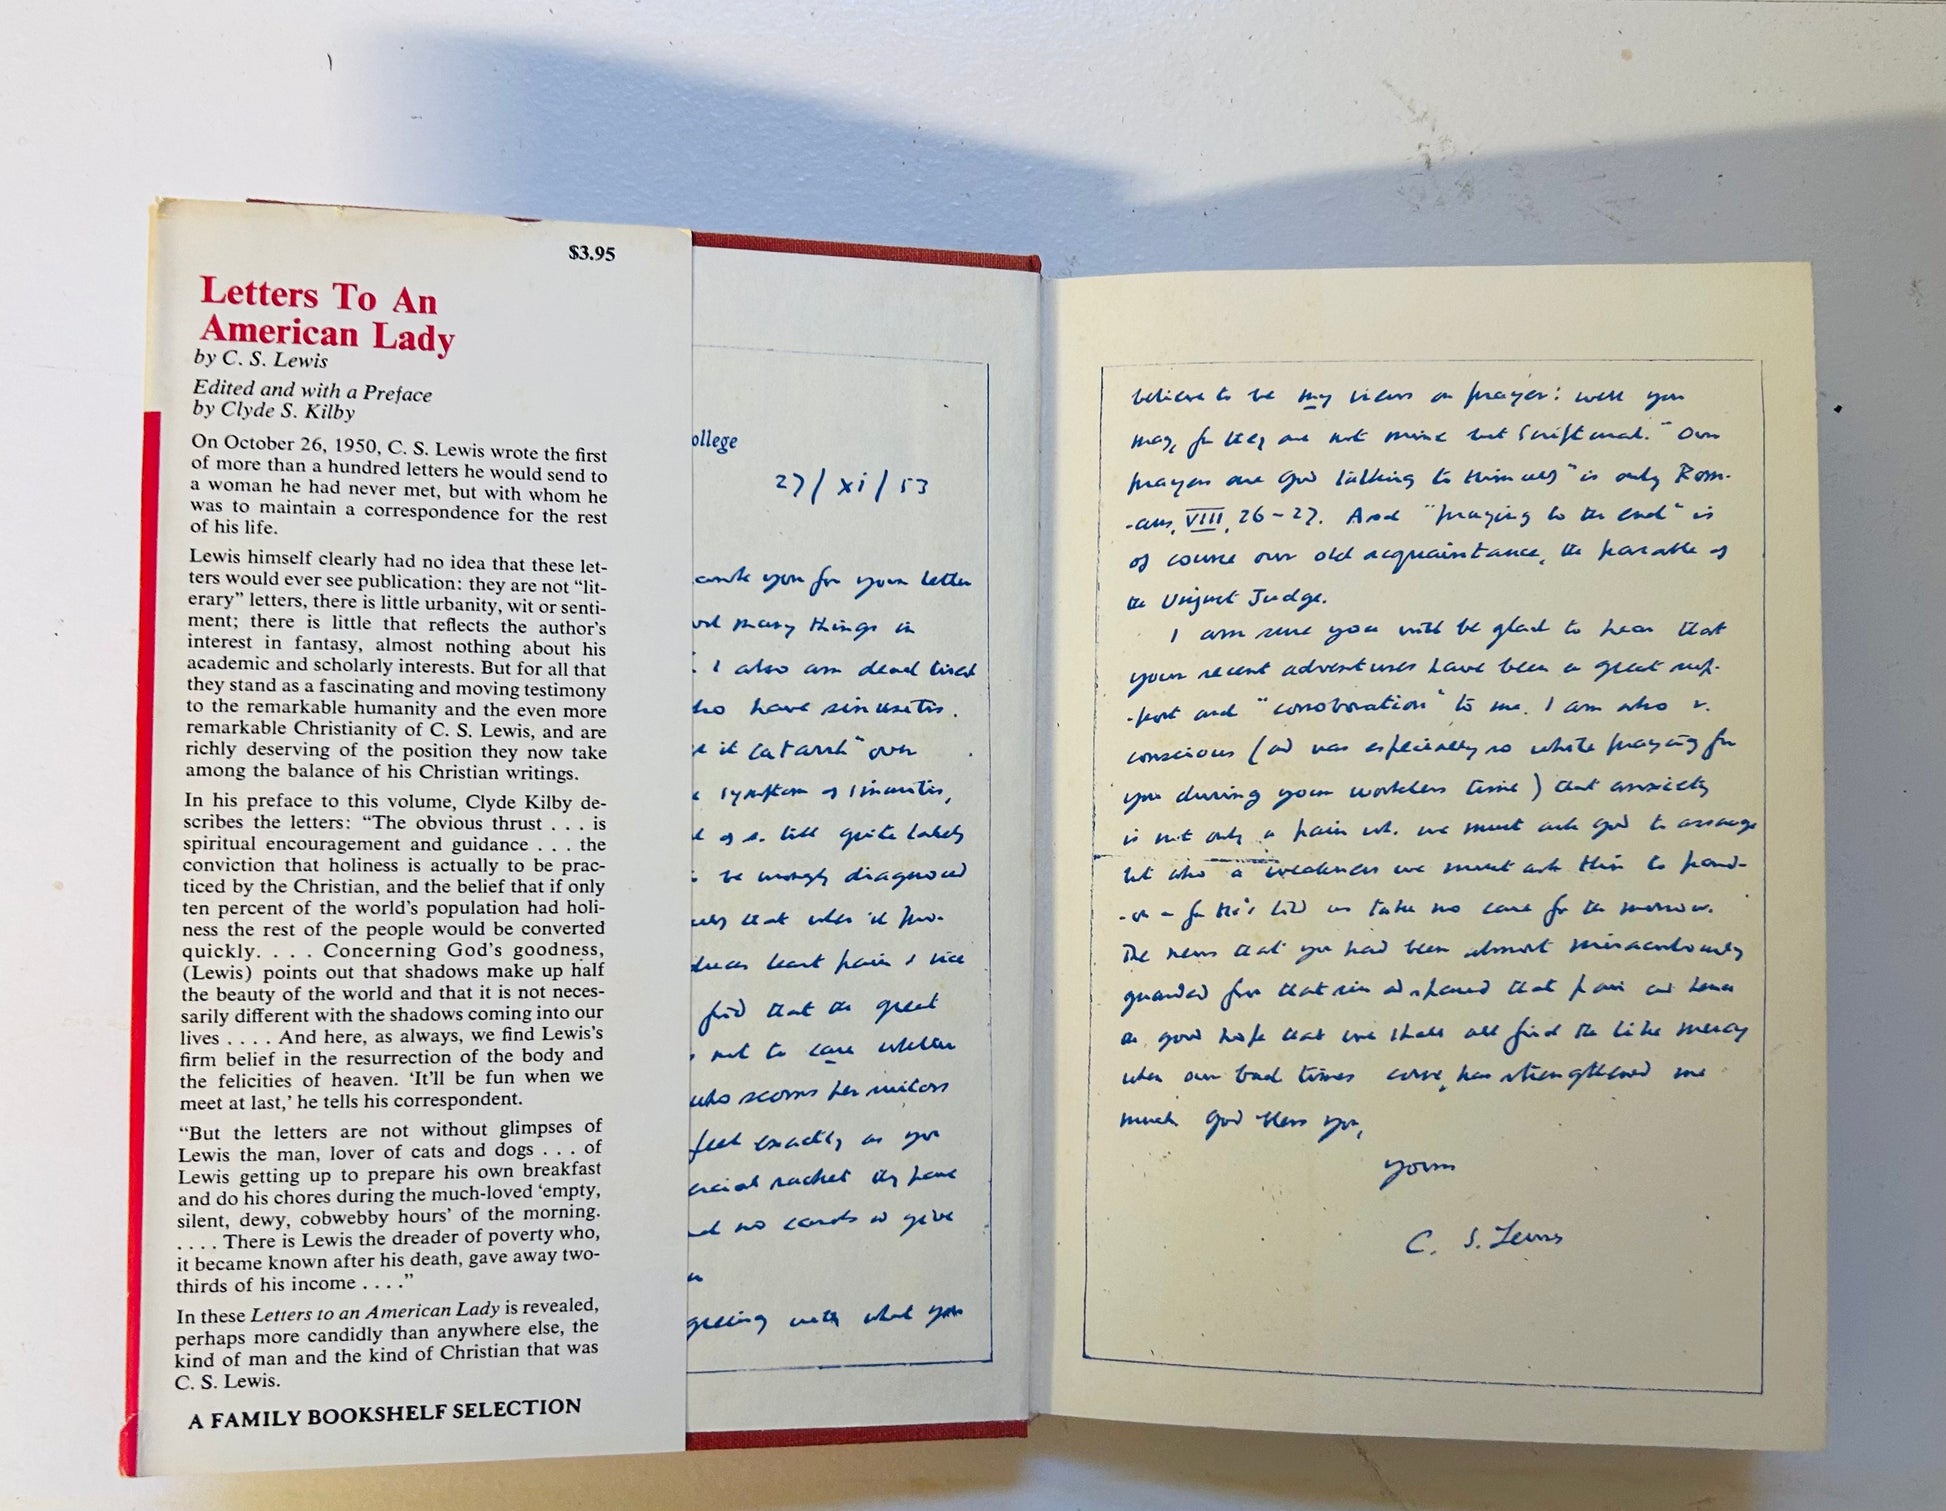 $3.95
Letters To An
American Lady
by C. S. Lewis
Edited and with a Preface
by Clyde S. Kilby
On October 26, 1950, C. S. Lewis wrote the first
of more than a hundred letters he would send to
a woman he had never met, but with whom he
was to maintain a correspondence for the rest
of his life.
Lewis himself clearly had no idea that these let-
ters would ever see publication: they are not “lit-
erary” letters, there is little urbanity, wit or senti-
ment; there is little that reflects the author’s
interest in fantasy, almost nothing about his
academic and scholarly interests. But for all that
they stand as a fascinating and moving testimony
to the remarkable humanity and the even more
remarkable Christianity of C. S. Lewis, and are
richly deserving of the position they now take
among the balance of his Christian writings.
In his preface to this volume, Clyde Kilby de-
scribes the letters: “The obvious thrust . . . is
spiritual encouragement and guidance . . . the
conviction that holiness is actually to be prac-
ticed by the Christian, and the belief that if only
ten percent of the world’s population had holi-
ness the rest of the people would be converted
quickly. . . . Concerning God’s goodness,
(Lewis) points out that shadows make up half
the beauty of the world and that it is not neces-
sarily different with the shadows coming into our
lives . . . . And here, as always, we find Lewis’s
firm belief in the resurrection of the body and
the felicities of heaven. ‘It’ll be fun when we
meet at last,’ he tells his correspondent.
“But the letters are not without glimpses of
Lewis the man, lover of cats and dogs . . . of
Lewis getting up to prepare his own breakfast
and do his chores during the much-loved ‘empty,
silent, dewy, cobwebby hours’ of the morning.
. . . . There is Lewis the dreader of poverty who,
it became known after his death, gave away two-
thirds of his income . . . .”
In these Letters to an American Lady is revealed,
perhaps more candidly than anywhere else, the
kind of man and the kind of Christian that was
C. S. Lewis.
A FAMILY BOOKSHELF SELECTION
ollege
27/xi/53
you for your letter
many things in
I also am dead tired
have sinusitis.
it catarrh” over
symptom of sinusitis,
of s. till quite lately
be wrongly diagnosed
that when it pro-
least pain & vice
find that the great
not to care whether
who scorns her suitors
feel exactly as you
racket they have
no cards & give
with what you
believe to be my views on prayer: well you
may, for they are not mine but Scriptural. “Our
prayers are God talking to Himself” is only Rom-
-ans, VIII, 26-27. And “praying to the end” is
of course our old acquaintance, the parable of
the Unjust Judge.
I am sure you will be glad to hear that
your recent adventures have been a great sup-
-port and “corroboration” to me. I am also v.
conscious (and was especially so while praying for
you during your workless time) that anxiety
is not only a pain wh. we must ask God to assuage
but also a weakness we must ask Him to pard-
-on - for He’s told us take no care for the morrow.
The news that you had been almost miraculously
guarded from that sin and spared that pain and hence
the good hope that we shall all find the like mercy
when our bad times come, has strengthened me
much. God bless you,
yours
C. S. Lewis